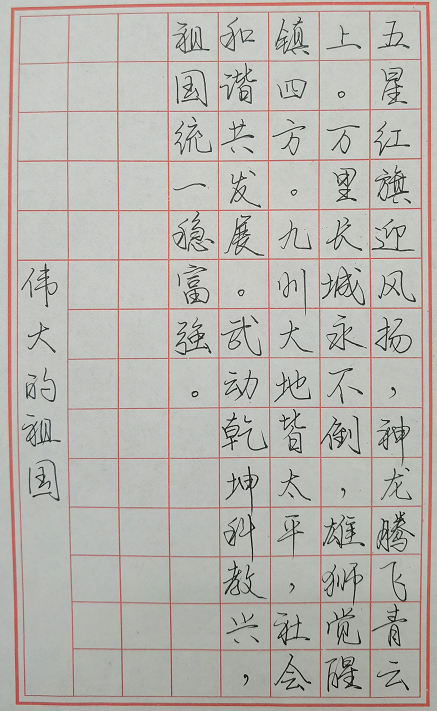 五星红旗迎风扬，神龙腾飞青云
上。万里长城永不倒，雄狮觉醒
镇四方。九州大地皆太平，社会
和谐共发展。武动乾坤科教兴，
祖国统一稳富强。
伟大的祖国